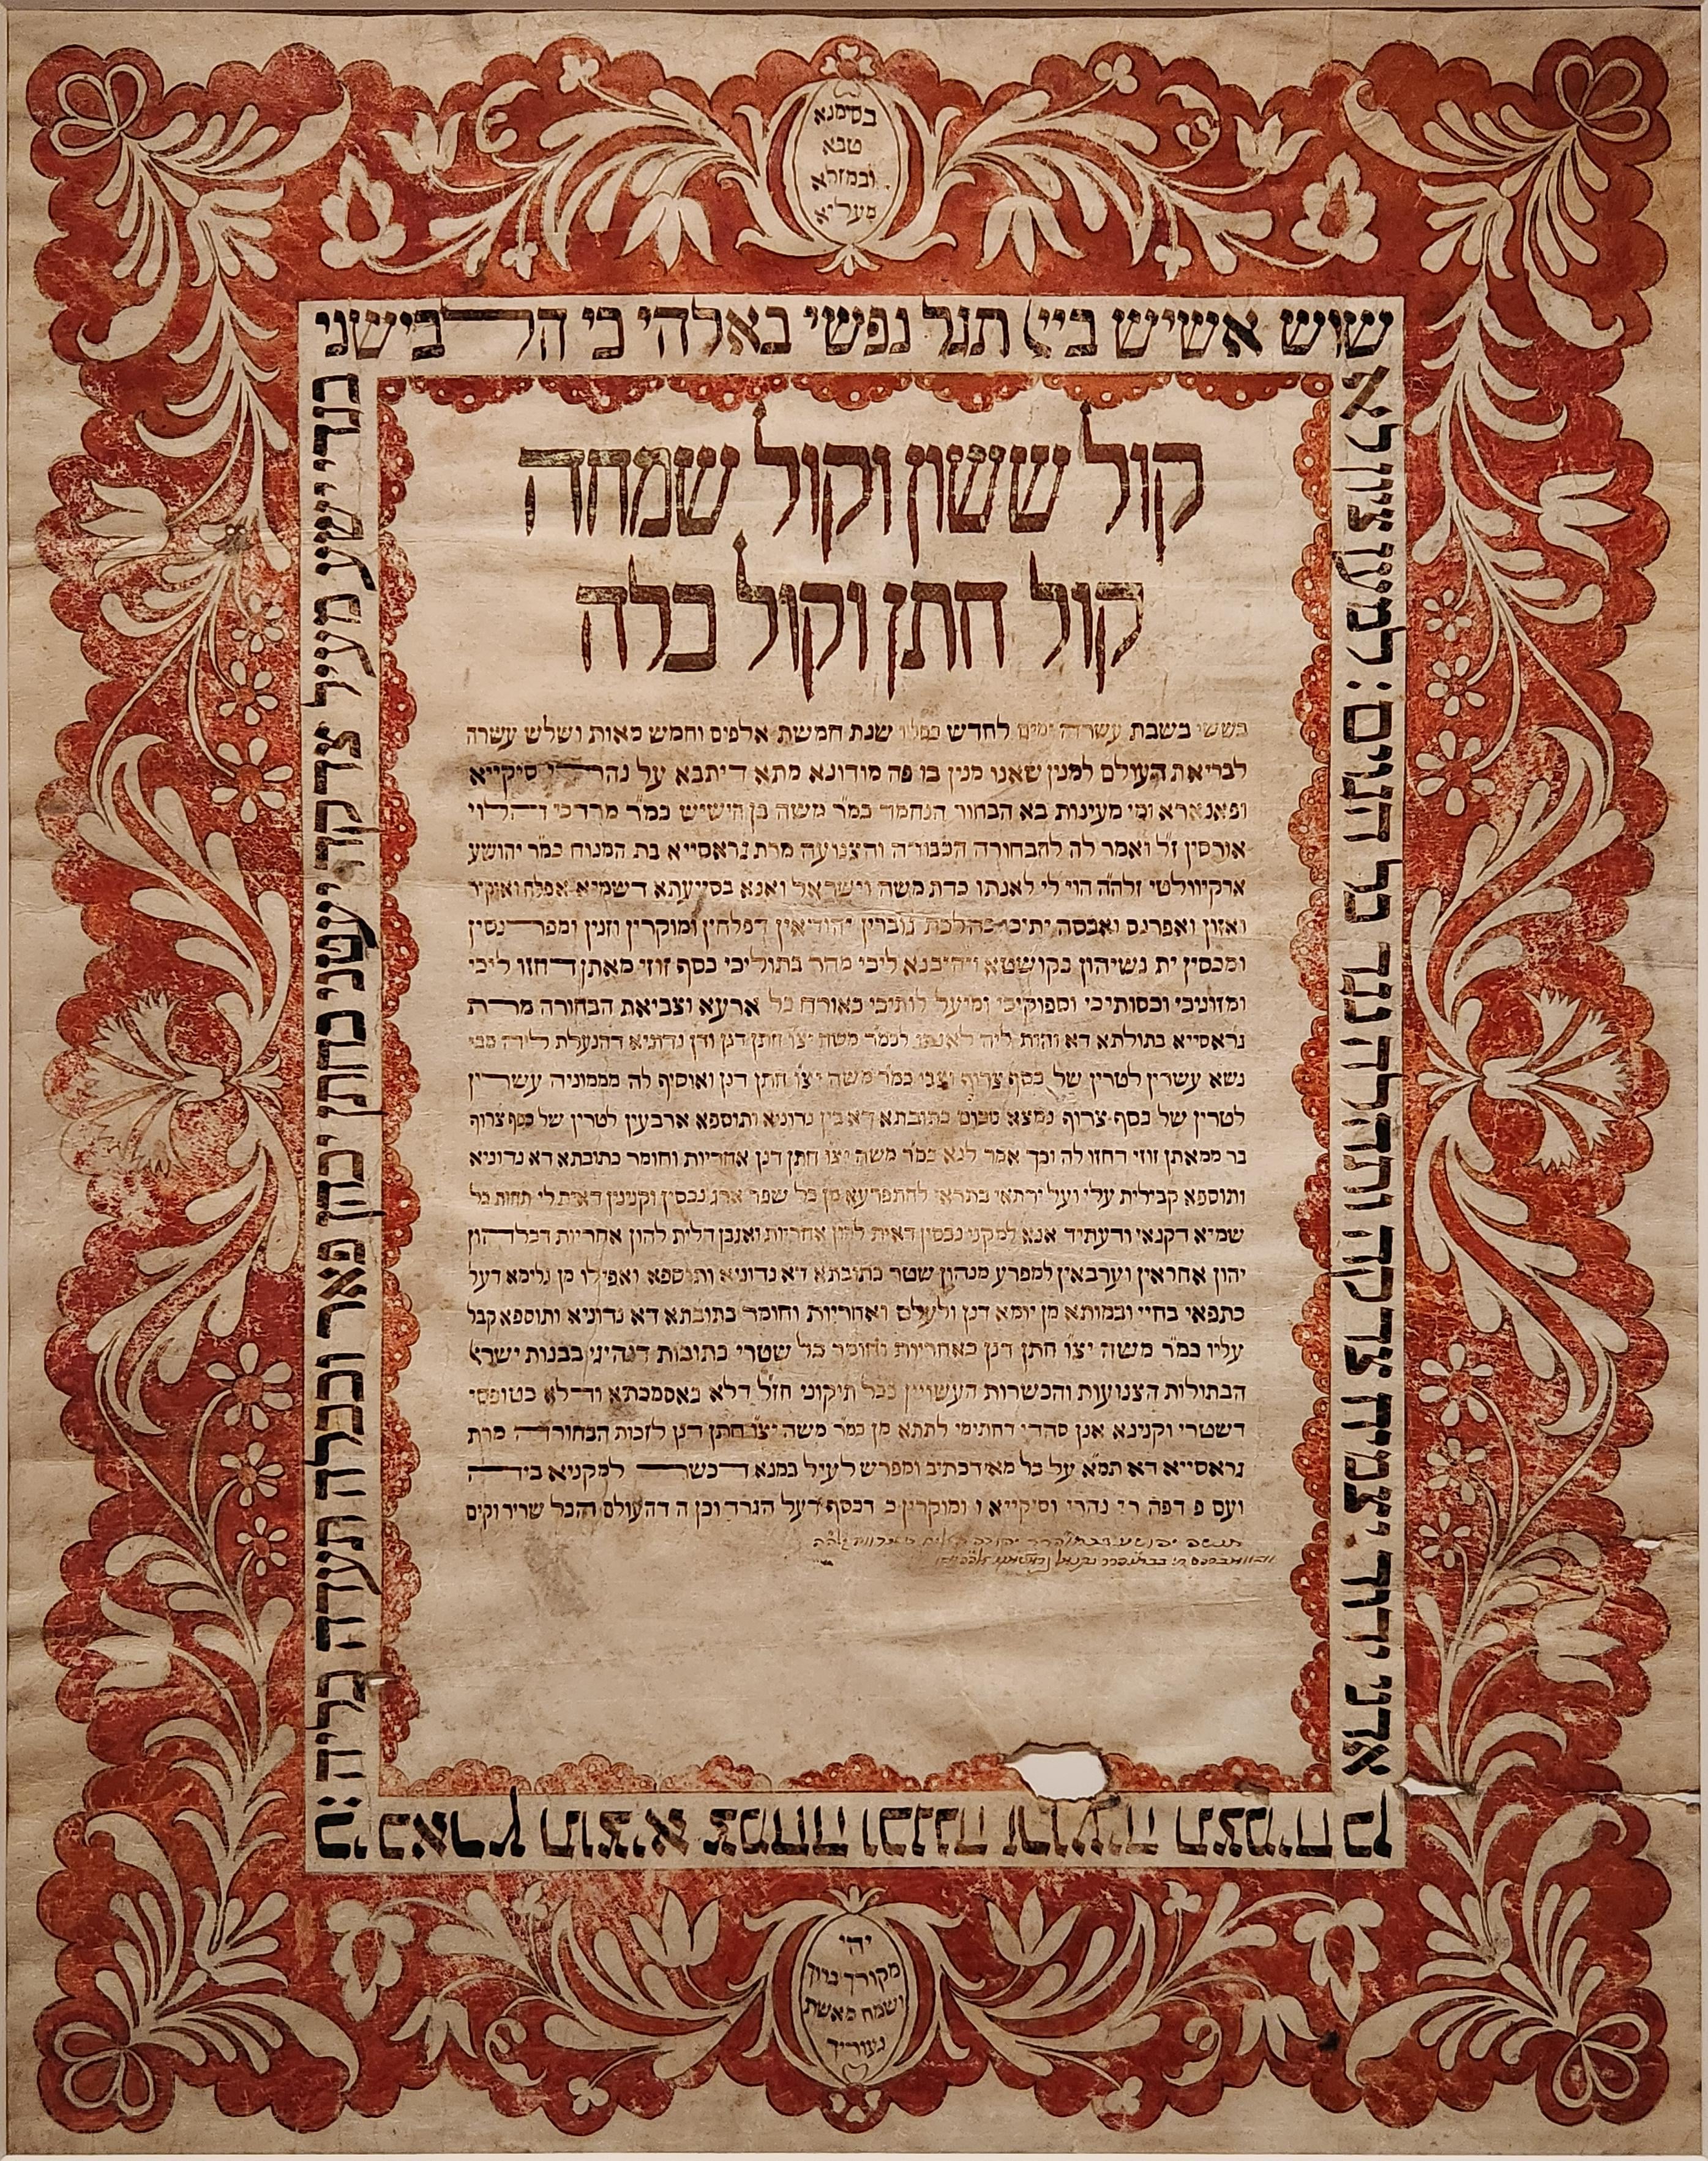 בסימנא
טבא
ובמזלא
מעליא
שוש אשיש ביי תגל נפשי באלהי כי הלבישני
בגדי ישע מעיל צדקה יעטני כחתן יכהן פאר וככלה תעדה כליה:
כי כארץ תוציא צמחה וכגנה זרועיה תצמיח כן
אדני ידוד יצמיח צדקה ותהלה נגד כל הגוים: למען ציון לא
קול ששון וקול שמחה
קול חתן וקול כלה
בששי בשבת עשרה ימים לחדש כסלו שנת חמשת אלפים וחמש מאות ושלש עשרה
לבריאת העולם למנין שאנו מנין בו פה מודונא מתא דיתבא על נהרי סיקייא
ופאנארא ומי מעינות בא הבחור הנחמד כמ"ר משה בן הישיש כמ"ר מרדכי הלוי
אורסין ז"ל ואמר לה להבחורה הכבודה והצנועה מרת גראסייא בת המנוח כמ"ר יהושע
ארקיוולטי זלה"ה הוי לי לאנתו כדת משה וישראל ואנא בסייעתא דשמיא אפלח ואוקיר
ואזון ואפרנס ואכסה יתיכי כהלכת גוברין יהודיאין דפלחין ומוקרין וזנין ומפרנסין
ומכסין ית נשיהון בקושטא ויהיבנא ליכי מהר בתוליכי כסף זוזי מאתן דחזו ליכי
ומזוניכי וכסותיכי וספוקיכי ומיעל לותיכי כאורח כל ארעא וצביאת הבחורה מרת
גראסייא בתולתא דא והות ליה לאנתו לכמ"ר משה יצ"ו חתן דנן ודן נדוניא דהנעלת ליה מבי
נשא עשרין לטרין של כסף צרוף וצבי כמ"ר משה יצ"ו חתן דנן ואוסיף לה מממוניה עשרין
לטרין של כסף צרוף נמצא סכום כתובתא דא בין נדוניא ותוספא ארבעין לטרין של כסף צרוף
בר ממאתן זוזי דחזו לה וכך אמר לנא כמ"ר משה יצ"ו חתן דנן אחריות וחומר כתובתא דא נדוניא
ותוספא קבילית עלי ועל ירתאי בתראי להתפרעא מן כל שפר ארג נכסין וקנינין דאית לי תחות כל
שמיא דקנאי ודעתיד אנא למקני נכסין דאית להון אחריות ואגבן דלית להון אחריות דכלהון
יהון אחראין וערבאין למפרע מנהון שטר כתובתא דא נדוניא ותוספא ואפילו מן גלימא דעל
כתפאי בחיי ובמותא מן יומא דנן ולעלם ואחריות וחומר כתובתא דא נדוניא ותוספא קבל
עליו כמ"ר משה יצ"ו חתן דנן כאחריות וחומר כל שטרי כתובות דנהיגי בבנות ישראל
הבתולות הצנועות והכשרות העשויין ככל תיקוני חז"ל דלא כאסמכתא ודלא כטופסי
דשטרי וקנינא אנן סהדי דחתימי לתתא מן כמ"ר משה יצ"ו חתן דנן לזכות הבחורה מרת
גראסייא דא תמ"א על כל מאי דכתיב ומפרש לעיל במנא דכשר למקניא ביה
הכל שריר וקים
יהי
מקורך ברוך
ושמח מאשת
נעוריך